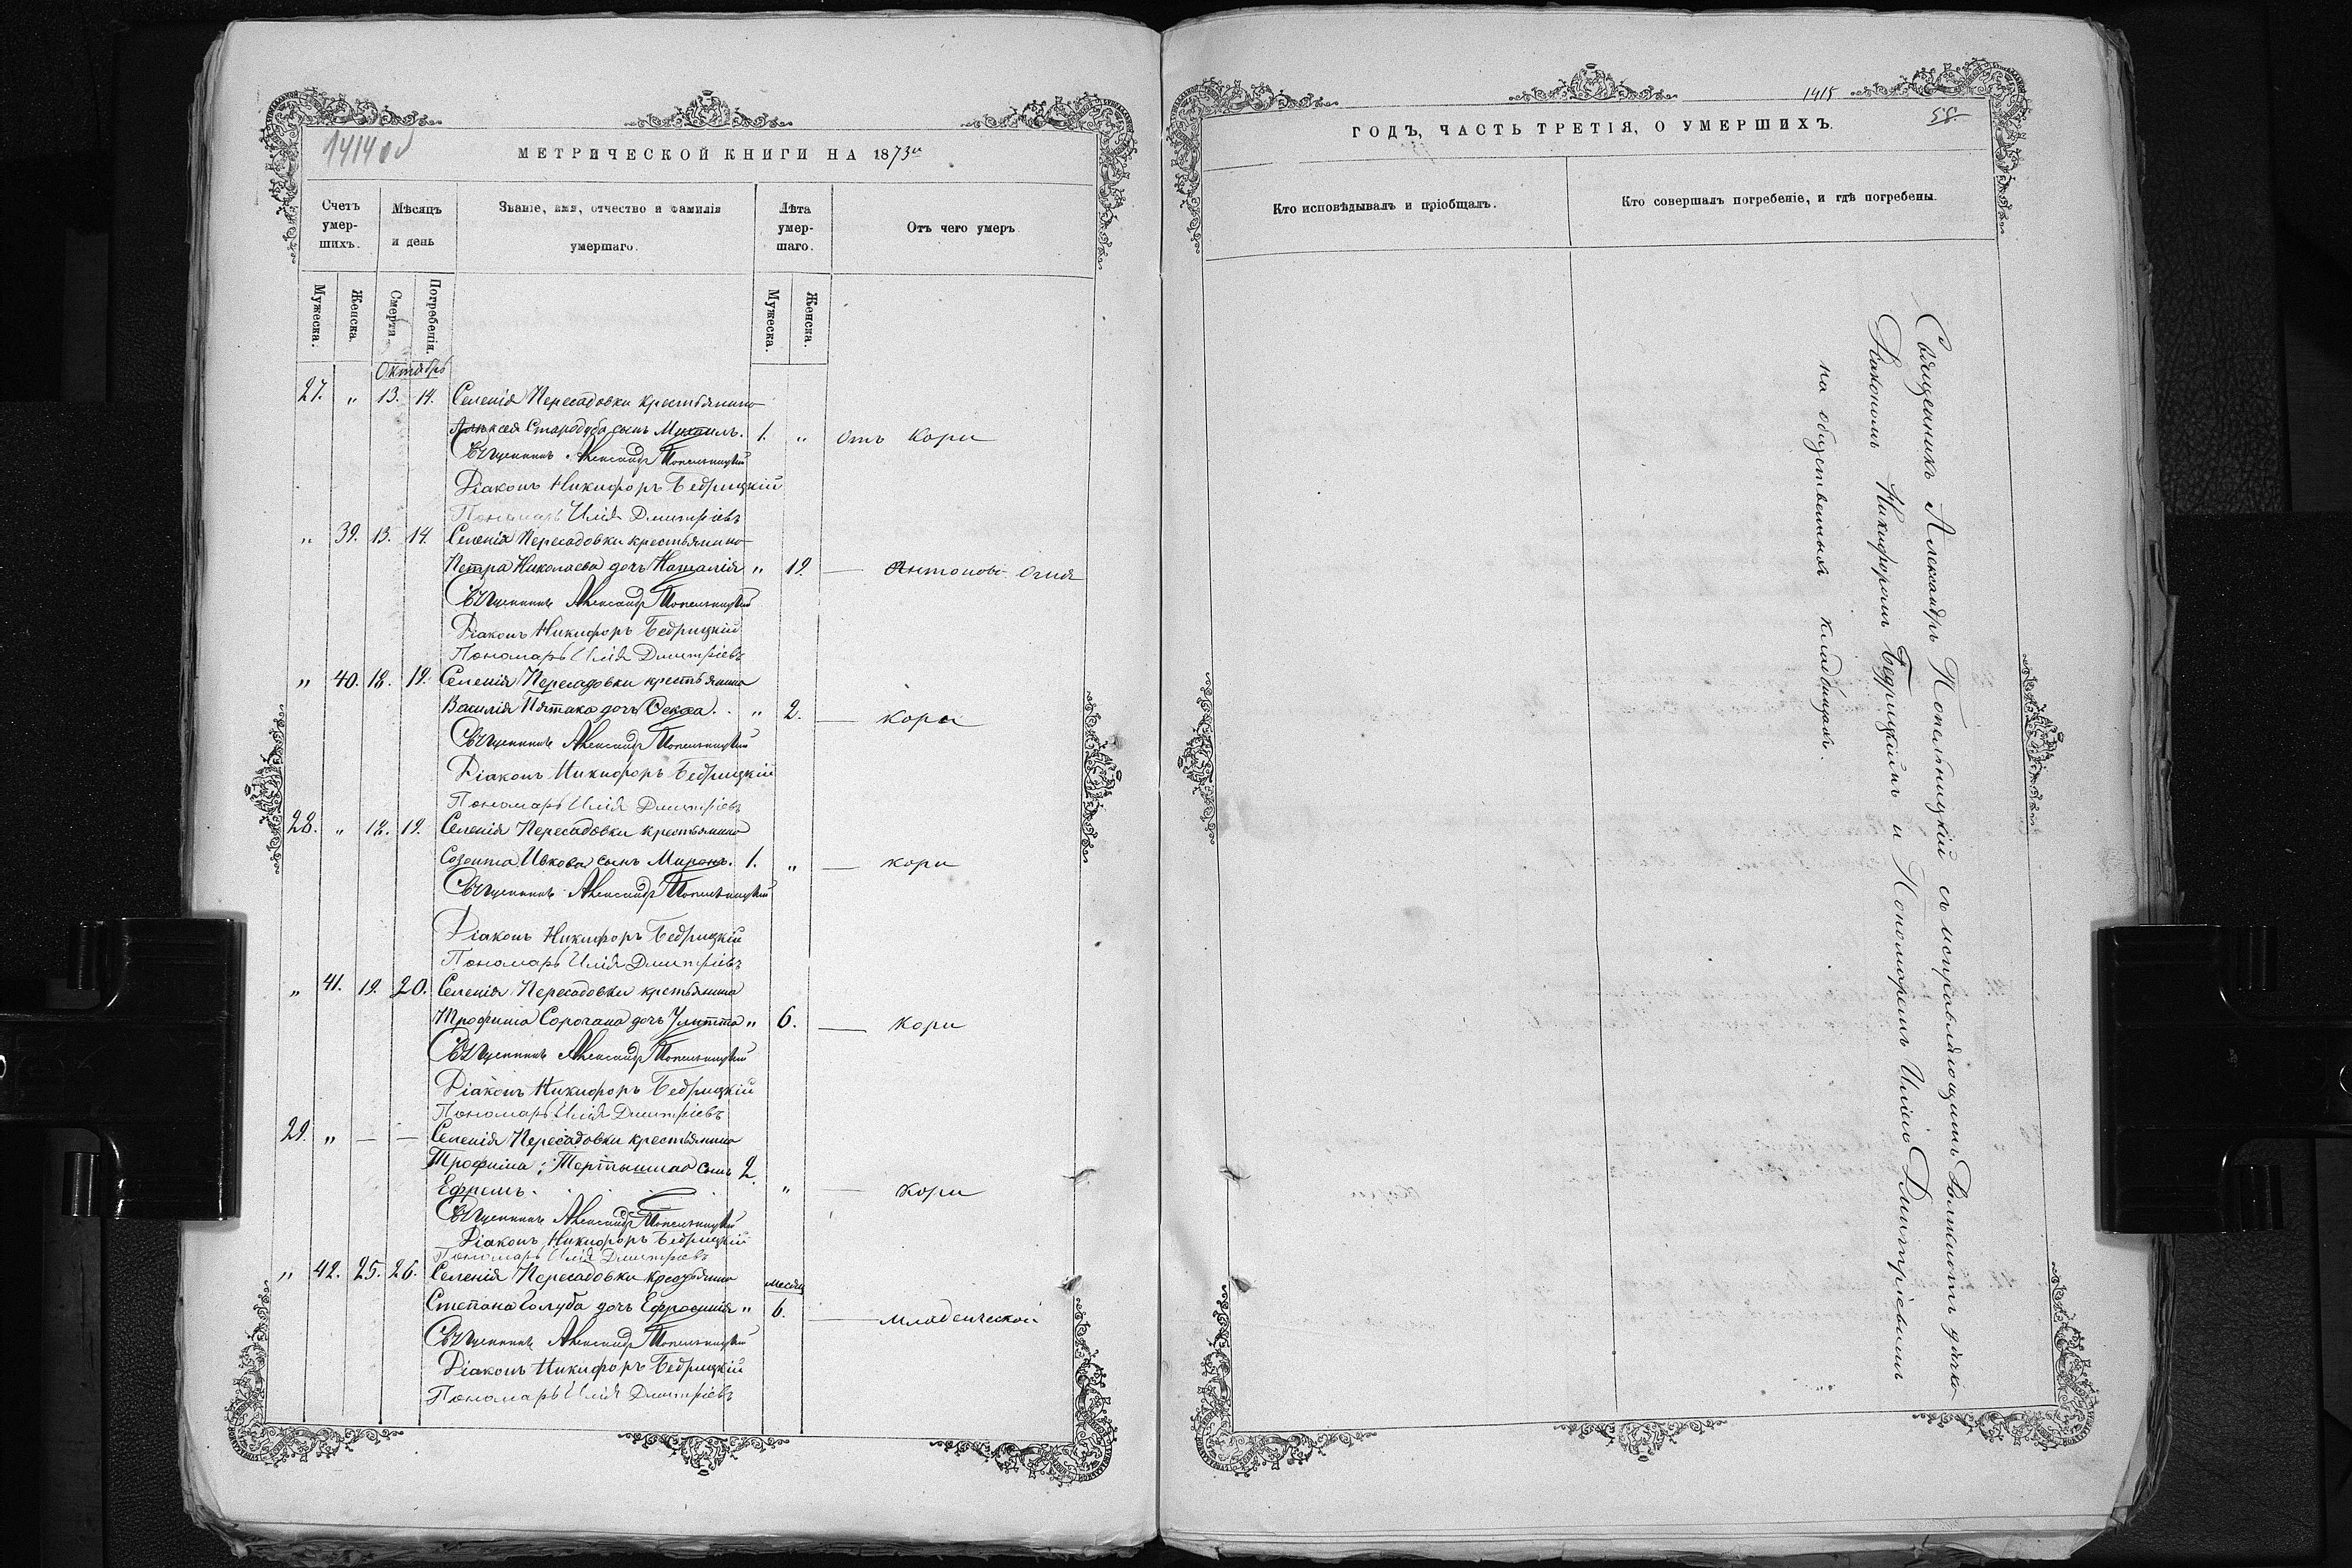 1414 об
МЕТРИЧЕСКОЙ КНИГИ НА 1873й
Счетъ умер-шихъ.
Мѣсяцъ и день
Званіе, имя, отчество и фамилія умершаго.
Лѣта умер-шаго.
Отъ чего умеръ
Мужеска.
Женска.
Смерти.
Погребенія.
Мужеска.
Женска.
Октябрь
27. „ 13. 14. Селенія Пересадовки крестьянина
Алексея Стародуба сынъ Михаилъ. 1. „ Отъ Кори
Священникъ Александръ Топельницкій
Діаконъ Никифоръ Бедрицкій
Пономарь Илія Дмитріевъ
„ 39. 13. 14. Селенія Пересадовки крестьянина
Петра Николаева дочь Наталія „ 19. — Антоновъ Огня
Священникъ Александръ Топельницкій
Діаконъ Никифоръ Бедрицкій
Пономарь Илія Дмитріевъ
„ 40. 18. 19. Селенія Пересадовки крестьянина
Василія Пятака дочь Фекла. „ 2. — кори
Священникъ Александръ Топельницкій
Діаконъ Никифоръ Бедрицкій
Пономарь Илія Дмитріевъ
28. „ 18. 19. Селенія Пересадовки крестьянина
Созонта Ивкова сынъ Миронъ. 1. „ — кори
Священникъ Александръ Топельницкій
Діаконъ Никифоръ Бедрицкій
Пономарь Илія Дмитріевъ
„ 41. 19. 20. Селенія Пересадовки крестьянина
Трофима Сорочана дочь Улитта „ 6. — кори
Священникъ Александръ Топельницкій
Діаконъ Никифоръ Бедрицкій
Пономарь Илія Дмитріевъ
29. „ — — Селенія Пересадовки крестьянина
Трофима сынъ 2.
Ефремъ. „ — кори
Священникъ Александръ Топельницкій
Діаконъ Никифоръ Бедрицкій
Пономарь Илія Дмитріевъ
„ 42. 25. 26. Селенія Пересадовки крестьянина месяц
Степана Голуба дочь Ефросинія „ 6. — младенческой
Священникъ Александръ Топельницкій
Діаконъ Никифоръ Бедрицкій
Пономарь Илія Дмитріевъ
1415
58.
ГОДЪ, ЧАСТЬ ТРЕТІЯ, О УМЕРШИХЪ.
Кто исповѣдывалъ и пріобщалъ.
Кто совершалъ погребеніе, и гдѣ погребены.
Священникъ Александръ Топельницкій съ исправляющимъ должность дячка
Діакономъ Никифоромъ Бедрицкимъ и Пономаремъ Иліею Дмитріевымъ
на общественныхъ кладбищахъ.